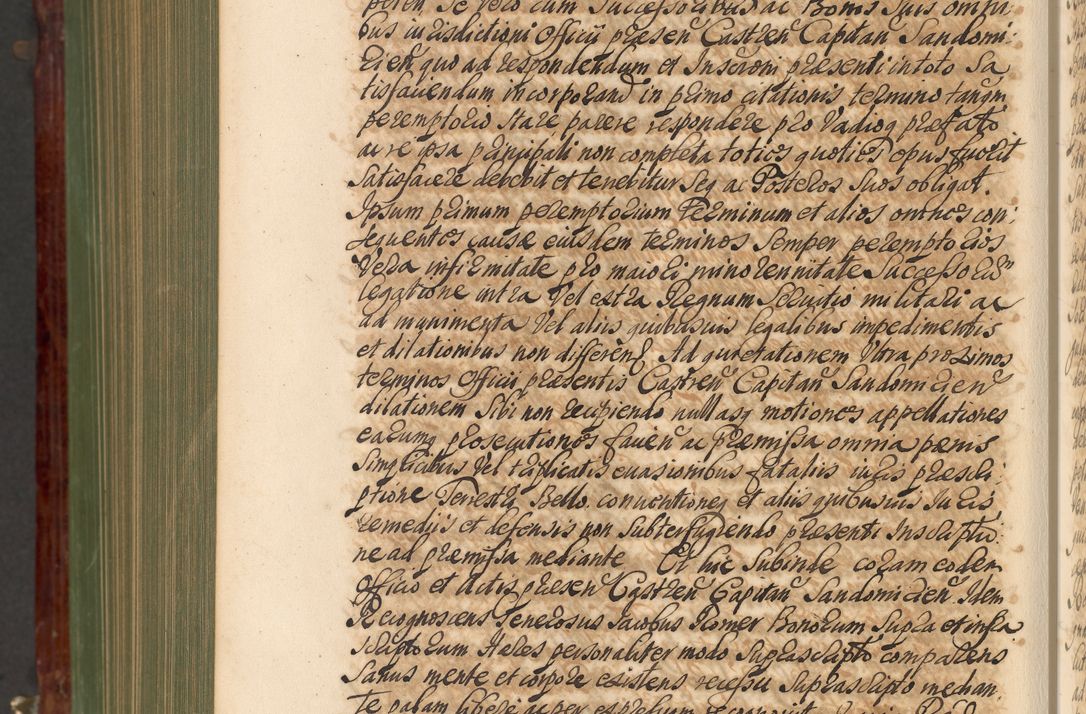 se vero cum Successoribus ac Bonis Suis omni:
bus iurisdictioni Officii præsen Castren Capitan Sandomi:
rien quo ad respondendum et Inscrōni præsenti in toto Sa
tisfaciendum incorporand in primo citationis termino tanqm
peremptorio Stare parere respondere pro Vadioq præfato
ac re ipsa principali non completa toties quoties opus fuerit
Satisfacere debebit et tenebitur Seq ac Posteros Suos obligat.
Ipsum primum peremptorium Terminum et alios omnes con:
sequentes causæ eiusdem terminos Semper peremptorios
Vera infirmitate pro maiori minorennitate Successorum
legatione intra Vel extra Regnum Servitio militari ac
ad munimenta Vel aliis quibusuis legalibus impedimentis
et dilationibus non differen Ad quietationem Ultra proximos
terminos Officii præsentis Castren Capitan Sandomirien
dilationem Sibi non recipiendo nullasq motiones appellationes
earumq prosecutiones facien ac Præmissa omnia pænis
Simplicibus Vel triplicatis euasionibus fataliis iuris præscri:
ptione Terrestri Bello conuentiones et aliis quibusuis Iuris
remediis et defensis non Subterfugiendo præsenti Inscriptio:
ne ad præmissa mediante Et hic Subinde coram eodem
Officio et Actis præsen Castren Capitan Sandomirien. Idem
Recognoscens Generosus Iacobus Romer Bonorum Supra et infra
scriptorum Hæres personaliter modo Suprascripto comparens
Sanus mente et corpore existens recessu Suprascripto median:
te palam libere ac per expressum recognouit